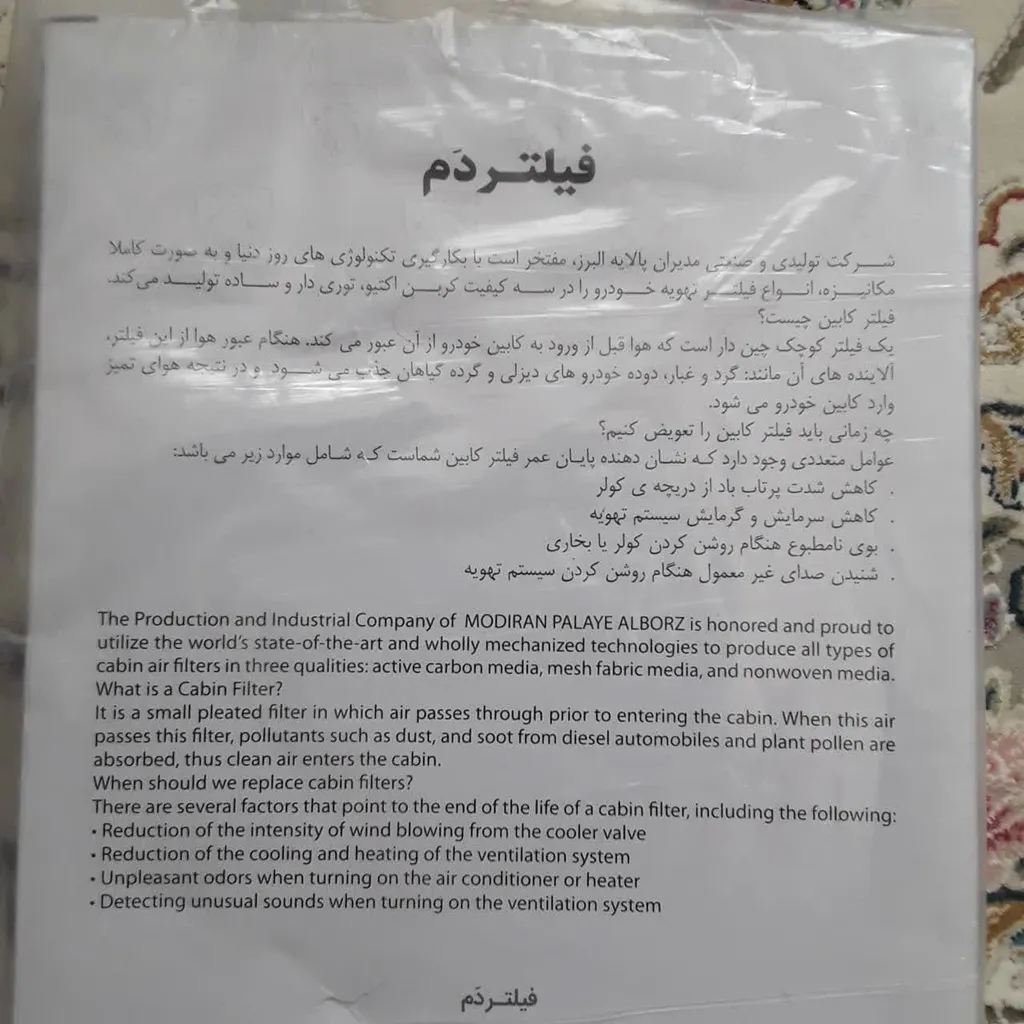 فیلتر دَم
شرکت تولیدی و صنعتی مدیران پالایه البرز، مفتخر است با بکارگیری تکنولوژی های روز دنیا و به صورت کاملا
مکانیزه، انواع فیلتر تهویه خودرو را در سه کیفیت کربن اکتیو، توری دار و ساده تولید می‌کند.
فیلتر کابین چیست؟
یک فیلتر کوچک چین دار است که هوا قبل از ورود به کابین خودرو از آن عبور می کند. هنگام عبور هوا از این فیلتر،
آلاینده های آن مانند: گرد و غبار، دوده خودرو های دیزلی و گرده گیاهان جذب می شود و در نتیجه هوای تمیز
وارد کابین خودرو می شود.
چه زمانی باید فیلتر کابین را تعویض کنیم؟
عوامل متعددی وجود دارد که نشان دهنده پایان عمر فیلتر کابین شماست که شامل موارد زیر می باشد:
. کاهش شدت پرتاب باد از دریچه ی کولر
. کاهش سرمایش و گرمایش سیستم تهویه
. بوی نامطبوع هنگام روشن کردن کولر یا بخاری
. شنیدن صدای غیر معمول هنگام روشن کردن سیستم تهویه
The Production and Industrial Company of MODIRAN PALAYE ALBORZ is honored and proud to
utilize the world's state-of-the-art and wholly mechanized technologies to produce all types of
cabin air filters in three qualities: active carbon media, mesh fabric media, and nonwoven media.
What is a Cabin Filter?
It is a small pleated filter in which air passes through prior to entering the cabin. When this air
passes this filter, pollutants such as dust, and soot from diesel automobiles and plant pollen are
absorbed, thus clean air enters the cabin.
When should we replace cabin filters?
There are several factors that point to the end of the life of a cabin filter, including the following:
• Reduction of the intensity of wind blowing from the cooler valve
• Reduction of the cooling and heating of the ventilation system
• Unpleasant odors when turning on the air conditioner or heater
• Detecting unusual sounds when turning on the ventilation system
فیلتر دَم